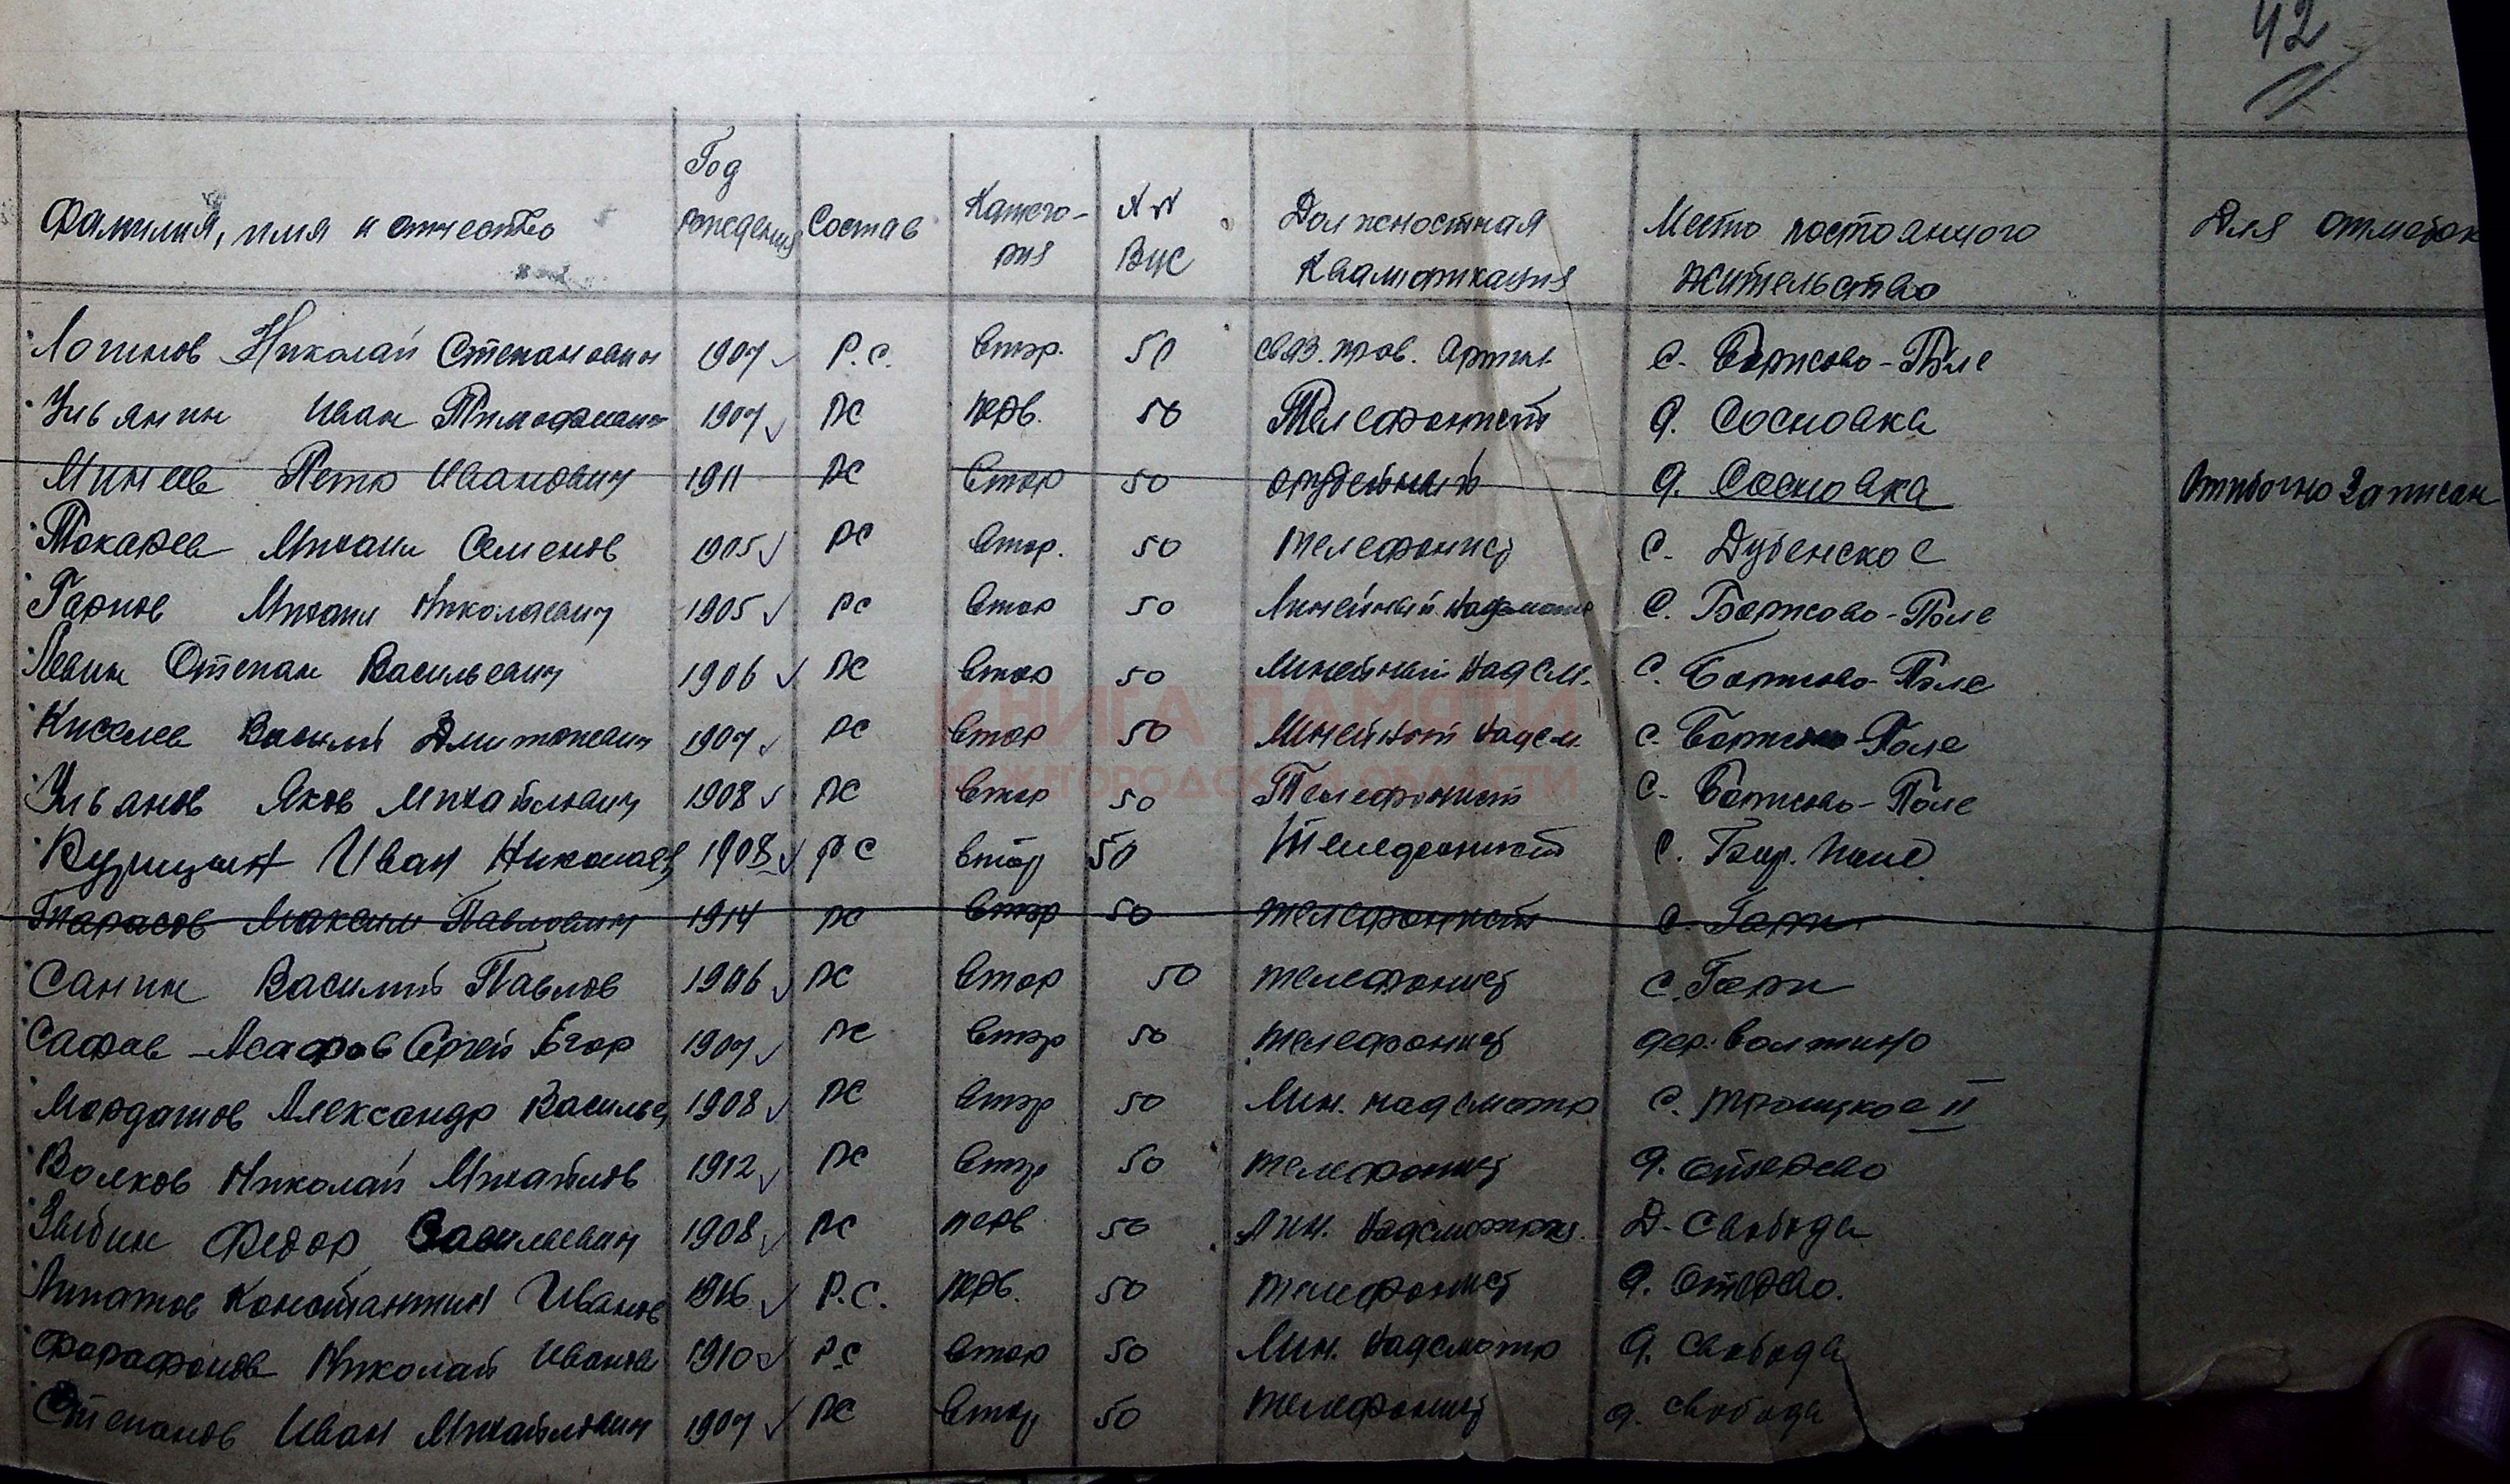 42
Фамилия, имя и отчество Год рождения Состав Категория №№ ВУС Должностная Квалификация Место постоянного жительства Для отметок
Логинов Николай Степанович 1907 Р.С. Втор. 50 связ. пров. Артил. С. Борисово-Поле
Ульянин Иван Тимофеевич 1907 РС перв. 50 Телефонист д. Сосновка
Минеев Петр Иванович 1911 РС Втор 50 орудейный д. Сосновка Ошибочно Записан
Токарев Михаил Семенов 1905 РС Втор. 50 телефонист С. Дубенское
Гарнов Михаил Николаевич 1905 РС Втор 50 Линейный надсмот С. Борисово-Поле
Левин Степан Васильевич 1906 РС Втор 50 Линейный Надсм. С. Борисово-Поле
Киселев Василий Дмитриевич 1907 РС Втор 50 Линейный Надсм. С. Борисово-Поле
Ульянов Яков Михайлович 1908 РС Втор 50 Телефонист С. Борисово-Поле
Иван Николаев 1908 РС Втор 50 Телефонист С. Бор. Поле
Тарасов Максим Павлович 1914 РС Втор 50 телефонист С. Гари
Санин Василий Павлов 1906 РС Втор 50 телефонист С. Гари
Сафов-Асафов Сергей Егор 1907 РС Втор 50 телефонист дер. Волтино
Мордатов Александр Василье 1908 РС Втор 50 Лин. надсмотр С. Троицкое II
Волков Николай Михайлов 1912 РС Втор 50 телефонист
Зыбин Федор Василиевич 1908 РС перв 50 Лин. Надсмотрщ. Д. Свобода
Липатов Константин Иванов Р.С. перв. 50 телефонист
Фарафонов Николай Иванов 1910 РС Втор 50 Лин. Надсмотр д. Свобода
Степанов Иван Михайлович 1907 РС Втор 50 телефонист д. Свобода
КНИГА ПАМЯТИ
НИЖЕГОРОДСКОЙ ОБЛАСТИ